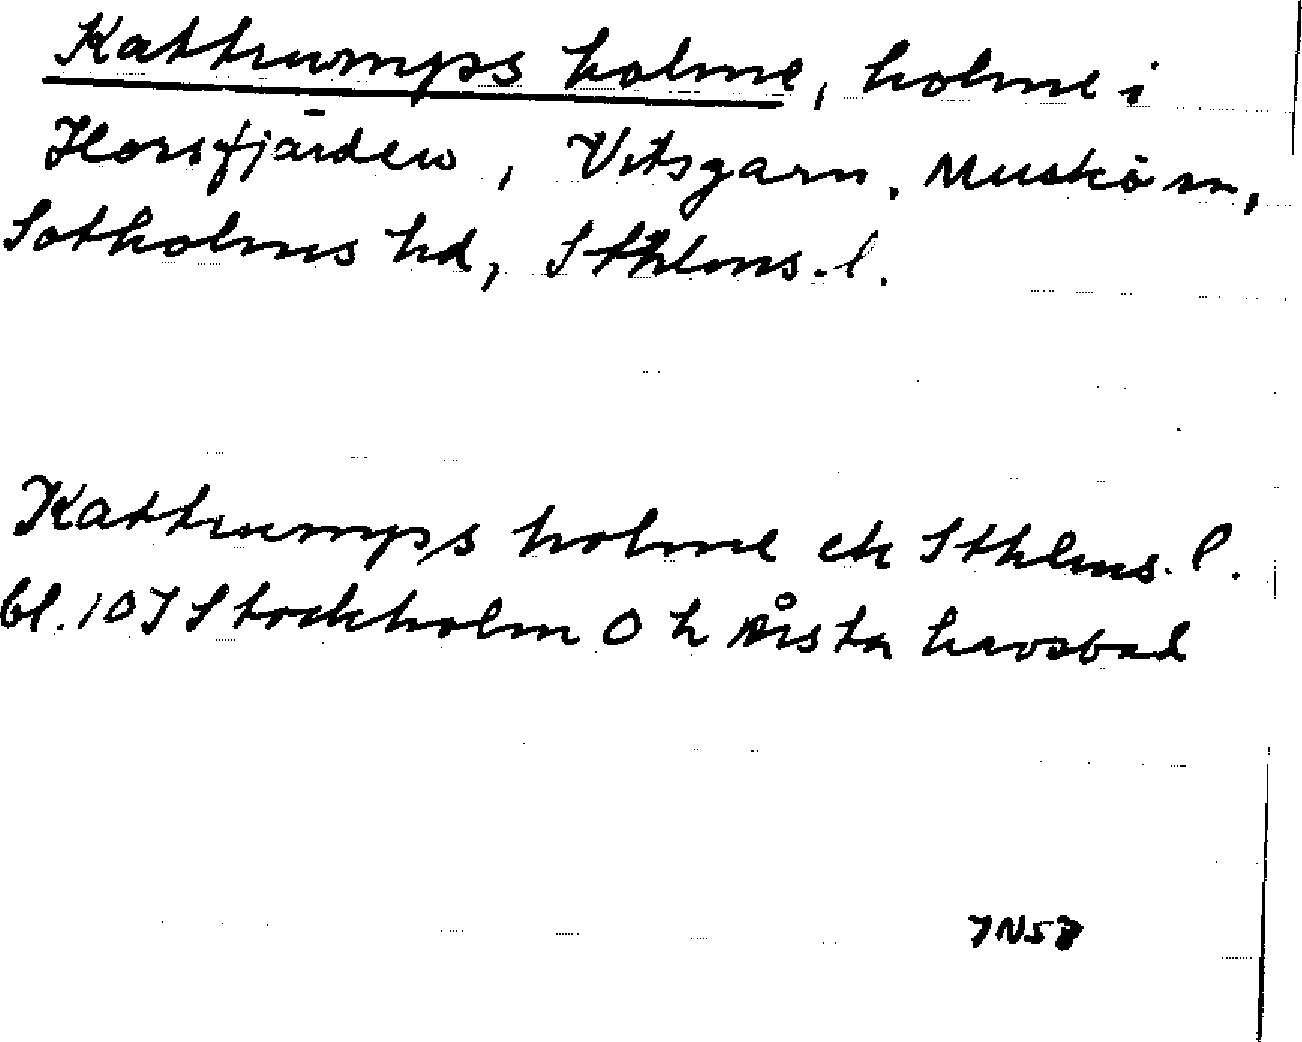 Kattrumps holme, holme i
Horsfjärden, Vitsgarn, Muskö sn,
Sotholms hd, Sthlms. l.
Kattrumps holme ek Sthlms. l.
bl. 107 Stockholm O h Årsta havsbad